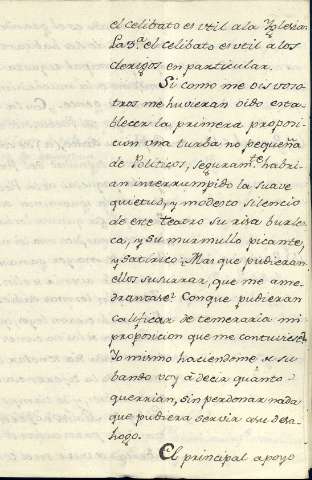 el celibato es util a la Yglesia.
La 3.ª el celibato es util a los
clerigos en particular.
Si como me ois voso
tros me huvieran oido esta
blecer la primera proposi
cion una turba no pequeña
de Politicos, seguram.te habri
an interrumpido la suave
quietud, y modesto silencio
de este teatro su risa burles
ca, y su murmullo picante,
y satirico. Mas que pudieran
ellos susurrar, que me ame
drantase? Con que pudieran
calificar de temeraria mi
proposicion que me contuviese?
Yo mismo haciendome de su
bando voy à decir quanto
querrian, sin perdonar nada
que pudiera servir a su desa
hogo.
El principal apoyo